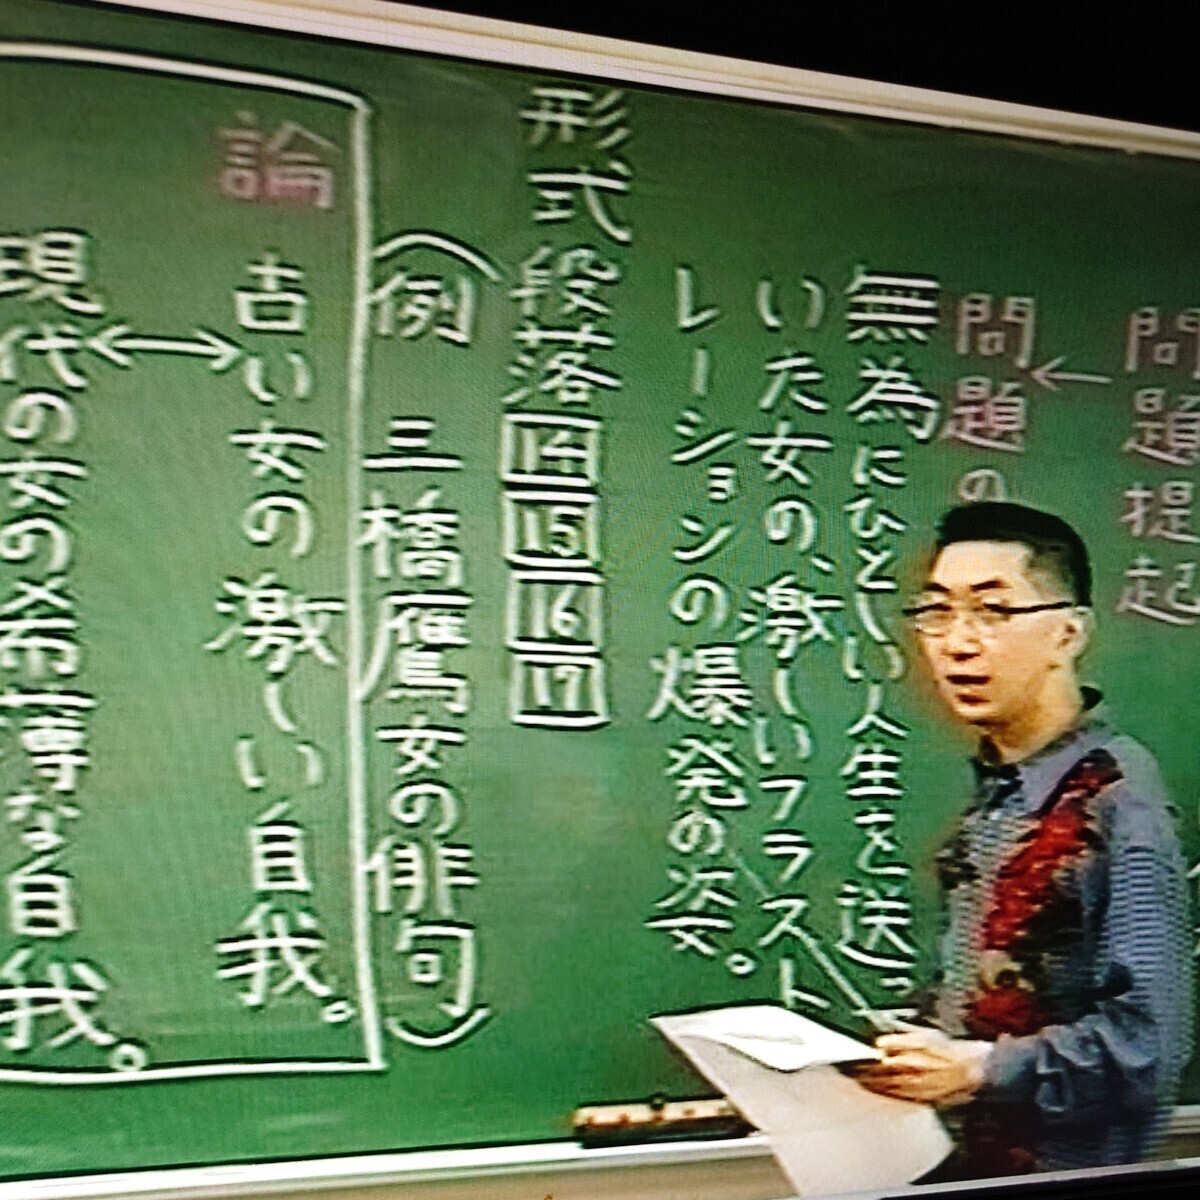 問題提起
←
問題の
無為にひとしい人生を送っ
いた女の、激しいフラスト
レーションの爆発の姿。
形式段落14 15 16 17
(例 三橋鷹女の俳句)
論 古い女の激しい自我。
↔
現代の女の希薄な自我。